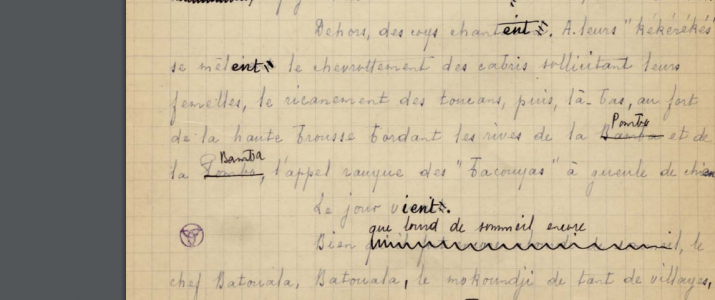 Dehors, des coqs chantent. A leurs "kékérékés"
se mêlent le chevrottement des cabris sollicitant leurs
femelles, le ricanement des toucans, puis, là-bas, au fort
de la haute brousse bordant les rives de la Bamba Pombo et de
la Pombo Bamba, l'appel rauque des "bacouyas" à gueule de chien
Le jour vient.
Bien que lourd de sommeil encore, le
chef Batouala, Batouala, le mokoundji de tant de villages,